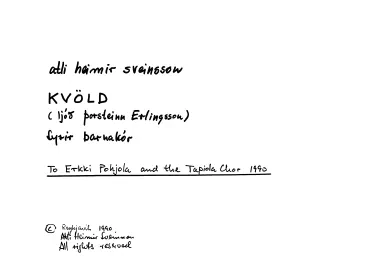 atli heimir sveinsson
KVÖLD
(ljóð þorsteinn Erlingsson)
fyrir barnakór
To Erkki Pohjola and the Tapiola Chor 1990
© Reykjavík 1990
Atli Heimir Sveinsson
All rights reserved